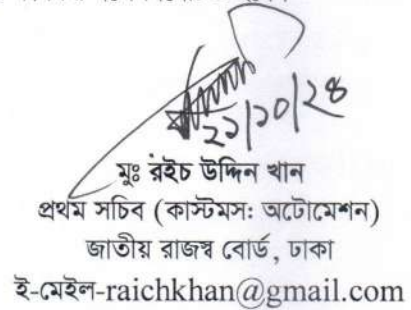 ২১/১০/২৪
মুঃ রইচ উদ্দিন খান
প্রথম সচিব (কাস্টমসঃ অটোমেশন)
জাতীয় রাজস্ব বোর্ড, ঢাকা
ই-মেইল-raichkhan@gmail.com